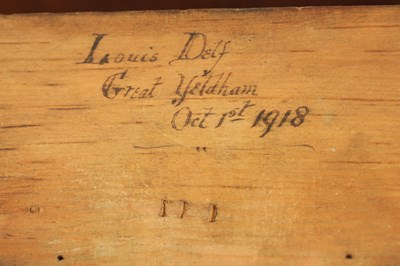 Louis Delf
Great Yeldham
Oct 1st 1918